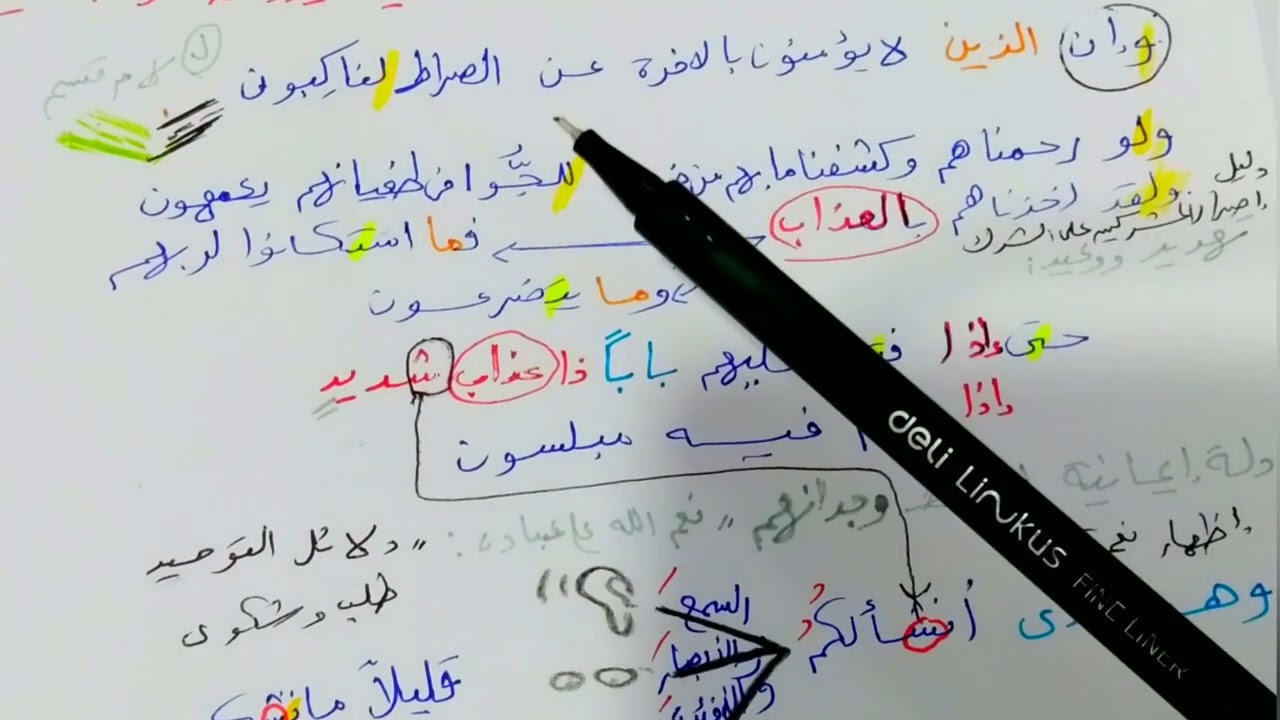 وإن الذين لا يؤمنون بالاخرة عن الصراط لناكبون
ل لام قسم
ولو رحمناهم وكشفنا ما بهم من للجُّوا في طغيانهم يعمهون
دليل
إصرار المشركين على الشرك
ولقد اخذناهم بالعذاب فما استكانوا لربهم
تهديد ووعيد:
وما يتضرعون
حتى إذا عليهم باباً ذا عذاب شديد
إذا
فيه مبلسون
إيمانية وجدانهم " نعم الله ع عباده :
إظهار " دلائل التوحيد
طلب وشكوى
أنشأ لكم
السمع
والأبصار
والأفئدة
قليلاً
deli LiNkUS FINE LINER